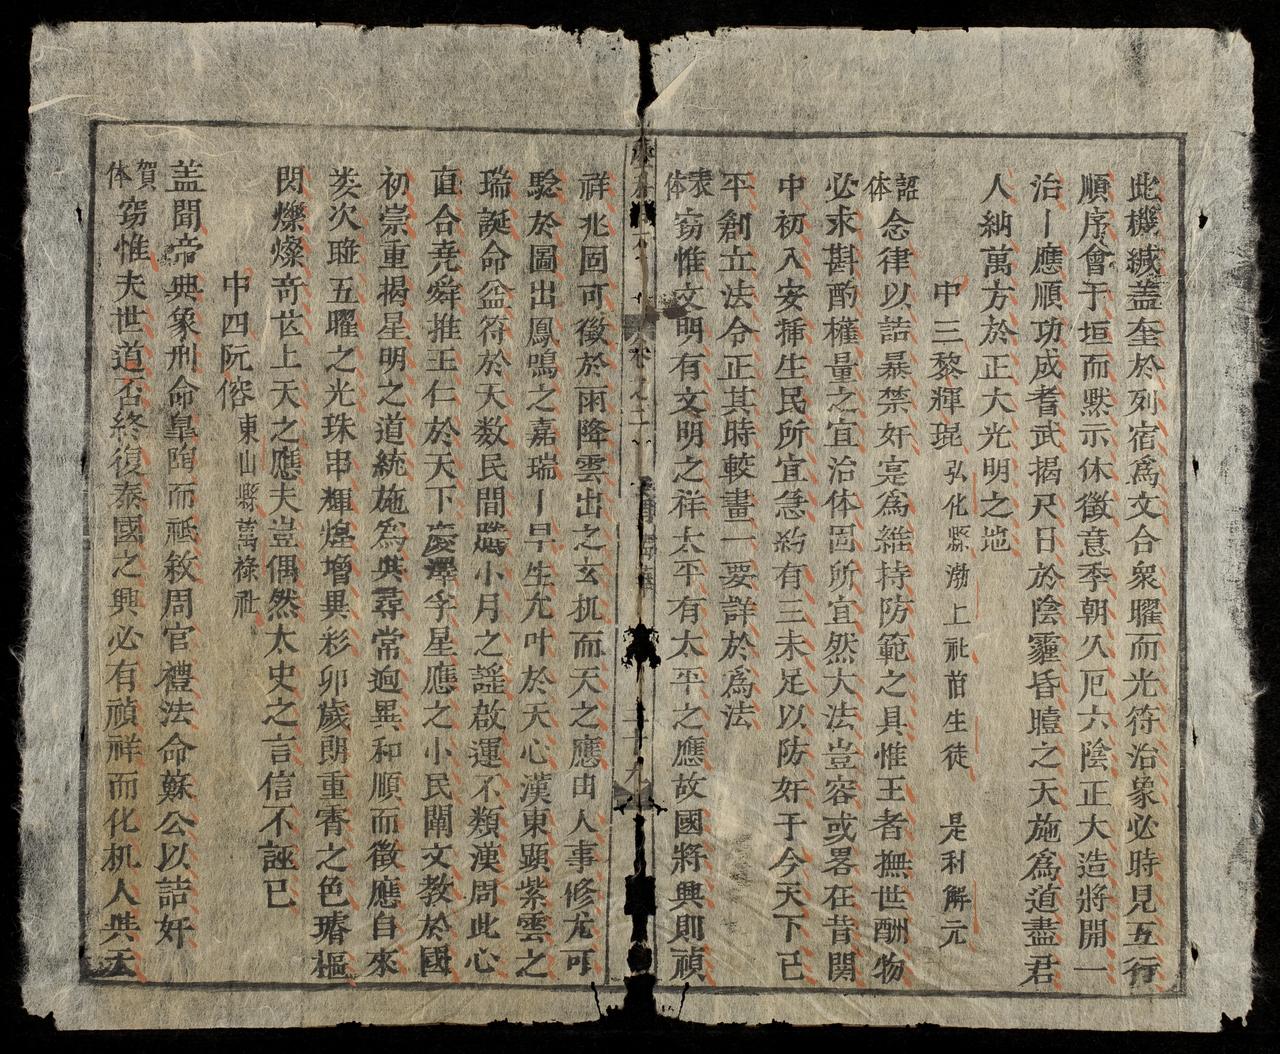 此機緘蓋奎於列宿爲文合衆曜而光符治象必時見五行
順序會于垣而黙示休徵意季朝久厄六陰正大造將開一
治丨應順功成耆武揭尺日於陰霾昏曀之天施爲道盡君
人納萬方於正大光明之地
中三黎輝琨弘化縣渤上社前生徒 是利解元
詔体念律以詰暴禁奸寔爲維持防範之具惟王者撫世酬物
必求斟酌權量之宜治体固所宜然大法豈容或畧在昔関
中初入安揷生民所宜急約有三未足以防奸于今天下已
平創立法令正其時較畫一要詳於爲法
表体窃惟文明有文明之祥太平有太平之應故國將興則禎
卷之二
祥兆固可徵於雨降雲出之玄机而天之應由人事修尤可
驗於圖出鳳鳴之嘉瑞丨早生允叶於天心漢東顕紫雲之
瑞誕命益符於天数民間騰小月之謡啟運不類漢周此心
直合尭舜推王仁於天下慶澤孛星應之小民闡文教於國
初崇重揭星明之道統施爲與尋常逈異和順而徵應自來
娄次聨五曜之光珠串輝煌增異彩卯歲朗重霄之色璿樞
閃爍燦竒芒上天之應夫豈偶然太史之言信不誣已
中四阮傛東山縣萬祿社
盖聞帝典象刑命皐陶而祗敘周官禮法命蘇公以詰奸
賀体窃惟夫世道否終復泰國之興必有禎祥而化机人與天